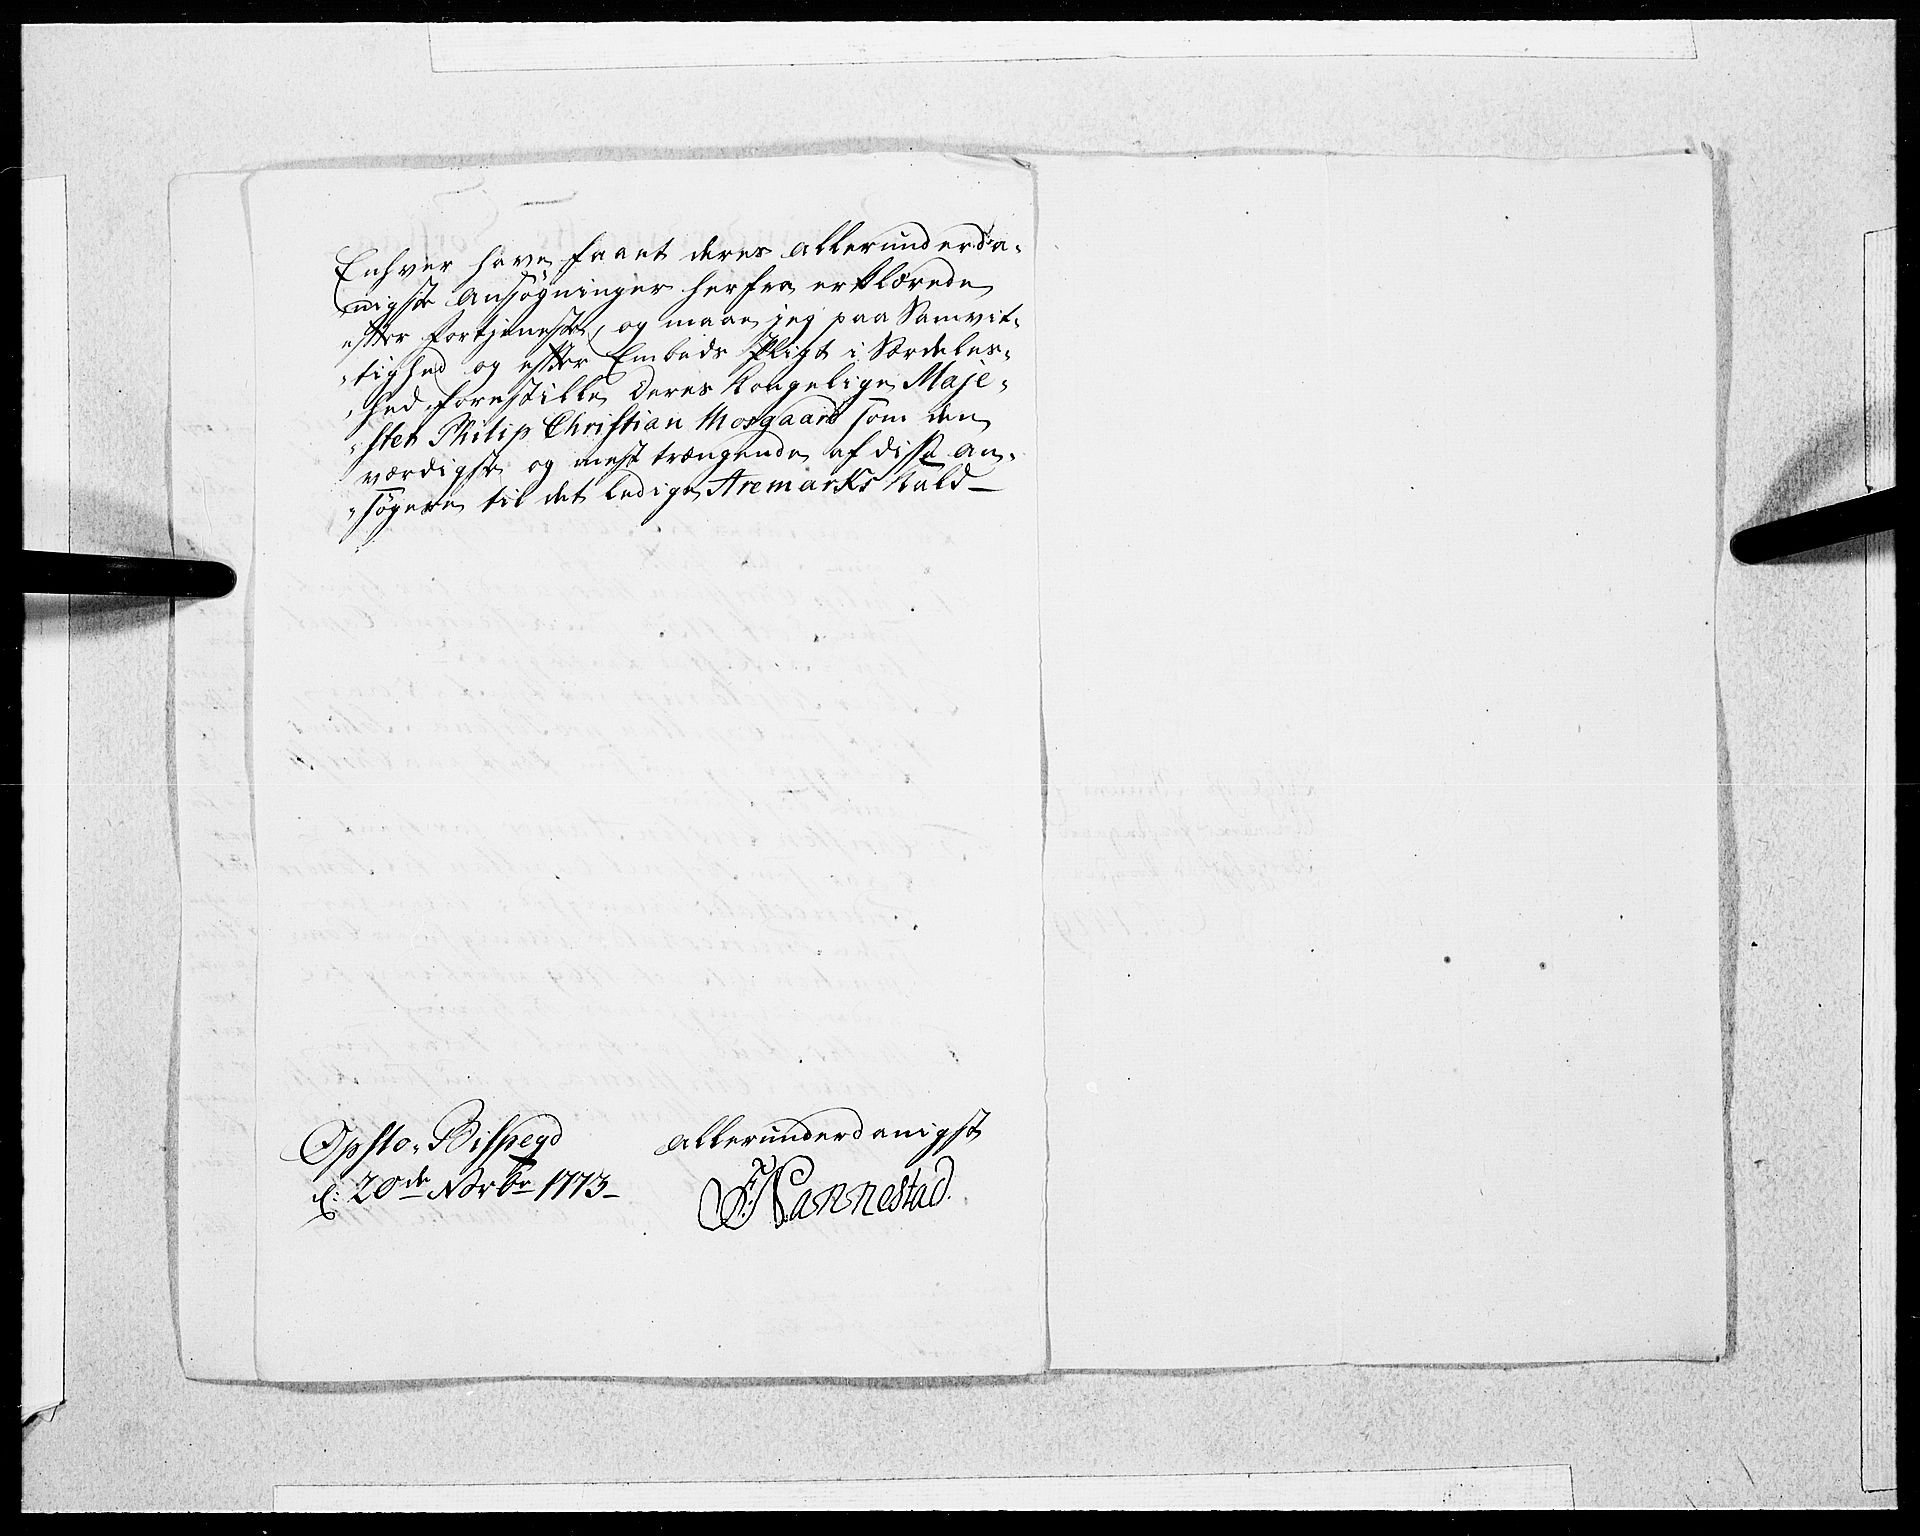 Enhver have faaet deres allerunderda-
nigste Ansøgninger herfra erklærede
efter Fortjeneste, og maae jeg paa Samvit-
-tighed og efter Embeds Pligt i Særdeles-
-hed forestille Deres Kongelige Maje-
-stet Philip Christian Mosgaard som den
værdigste og mest trængende af disse An-
-søgere til det ledige Aremarks Kald_
Opslo-Bispegd
d: 20de Novbr 1773_
allerunderdanigst
F: Nannestad.